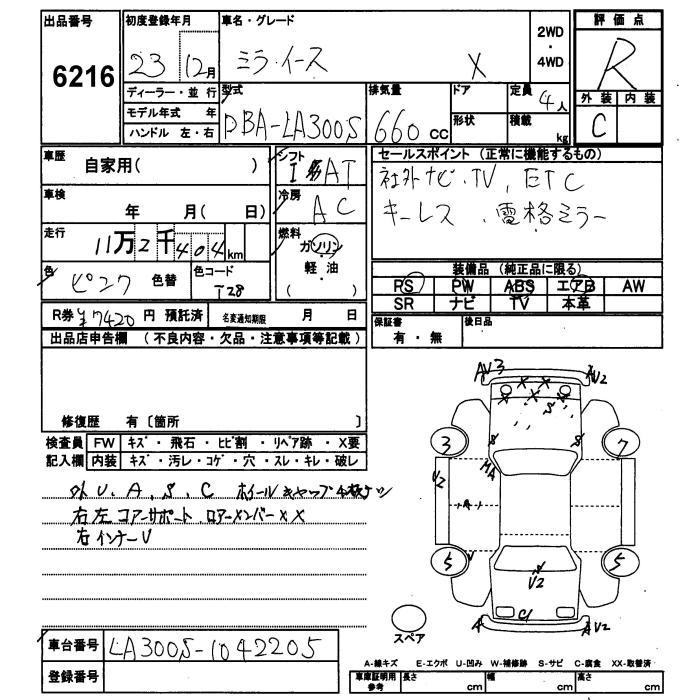 出品番号
6216
初度登録年月
23 12月
車名・グレード
ミライース X
2WD
・
4WD
評価点
R
外装 内装
C
ディーラー・並行
モデル年式 年
ハンドル 左・右
型式
DBA-LA300S
排気量
660 CC
ドア
形状
定員
4人
積載
kg
車歴
自家用( )
車検
年 月( 日)
走行
11万2千404km
色
ピンク 色替
色コード
T28
シフト
I AT
冷房
AC
燃料
ガソリン
軽・油
( )
セールスポイント (正常に機能するもの)
社外ナビ.TV, ETC
キーレス .電格ミラー
装備品 (純正品に限る)
PS PW ABS エアB AW
SR ナビ TV 本革
R券 ¥7420 円 預託済
名変通知期限 月 日
保証書
有・無
後日品
出品店申告欄 (不良内容・欠品・注意事項等記載)
修復歴 有〔箇所 〕
検査員
記入欄
FW キズ・飛石・ヒビ割・リペア跡・X要
内装 キズ・汚レ・コゲ・穴・スレ・キレ・破レ
外U.A.S.C ホイールキャップ4枚ナシ
右左コアーサポート.ロアーメンバーXX
右インナーU
車台番号 LA300S-1042205
登録番号
AU3
AU2
3
7
MA
U2
A
5
5
U2
C
A
AU2
スペア
A-線キズ E-エクボ U-凹み W-補修跡 S-サビ C-腐食 XX-取替済
車庫証明用
参考
長さ cm
幅 cm
高さ cm